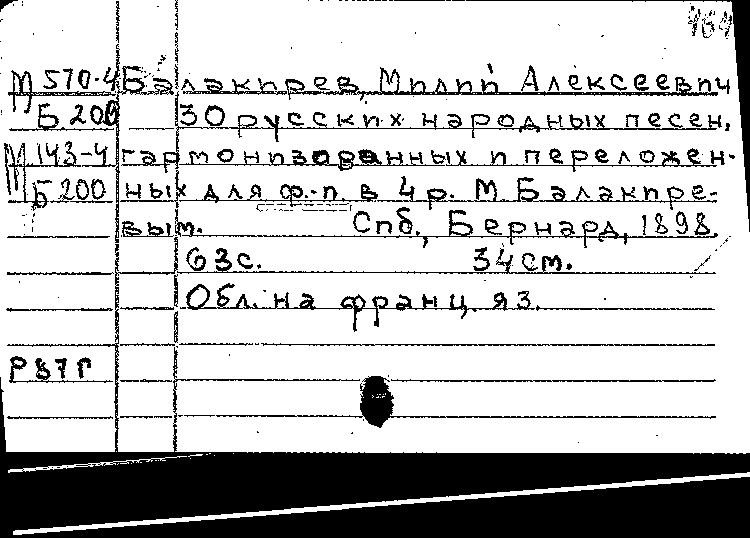 464
М 570-4 Балакирев, Милий Алексеевич
Б 200 30 русских народных песен,
М 143-4 гармонизованных и переложен-
Б 200 ных для ф.-п. в 4 р. М Балакире-
вым. Спб., Бернард, 1898.
63 с. 34 см.
Обл. на франц. яз.
Р87Г